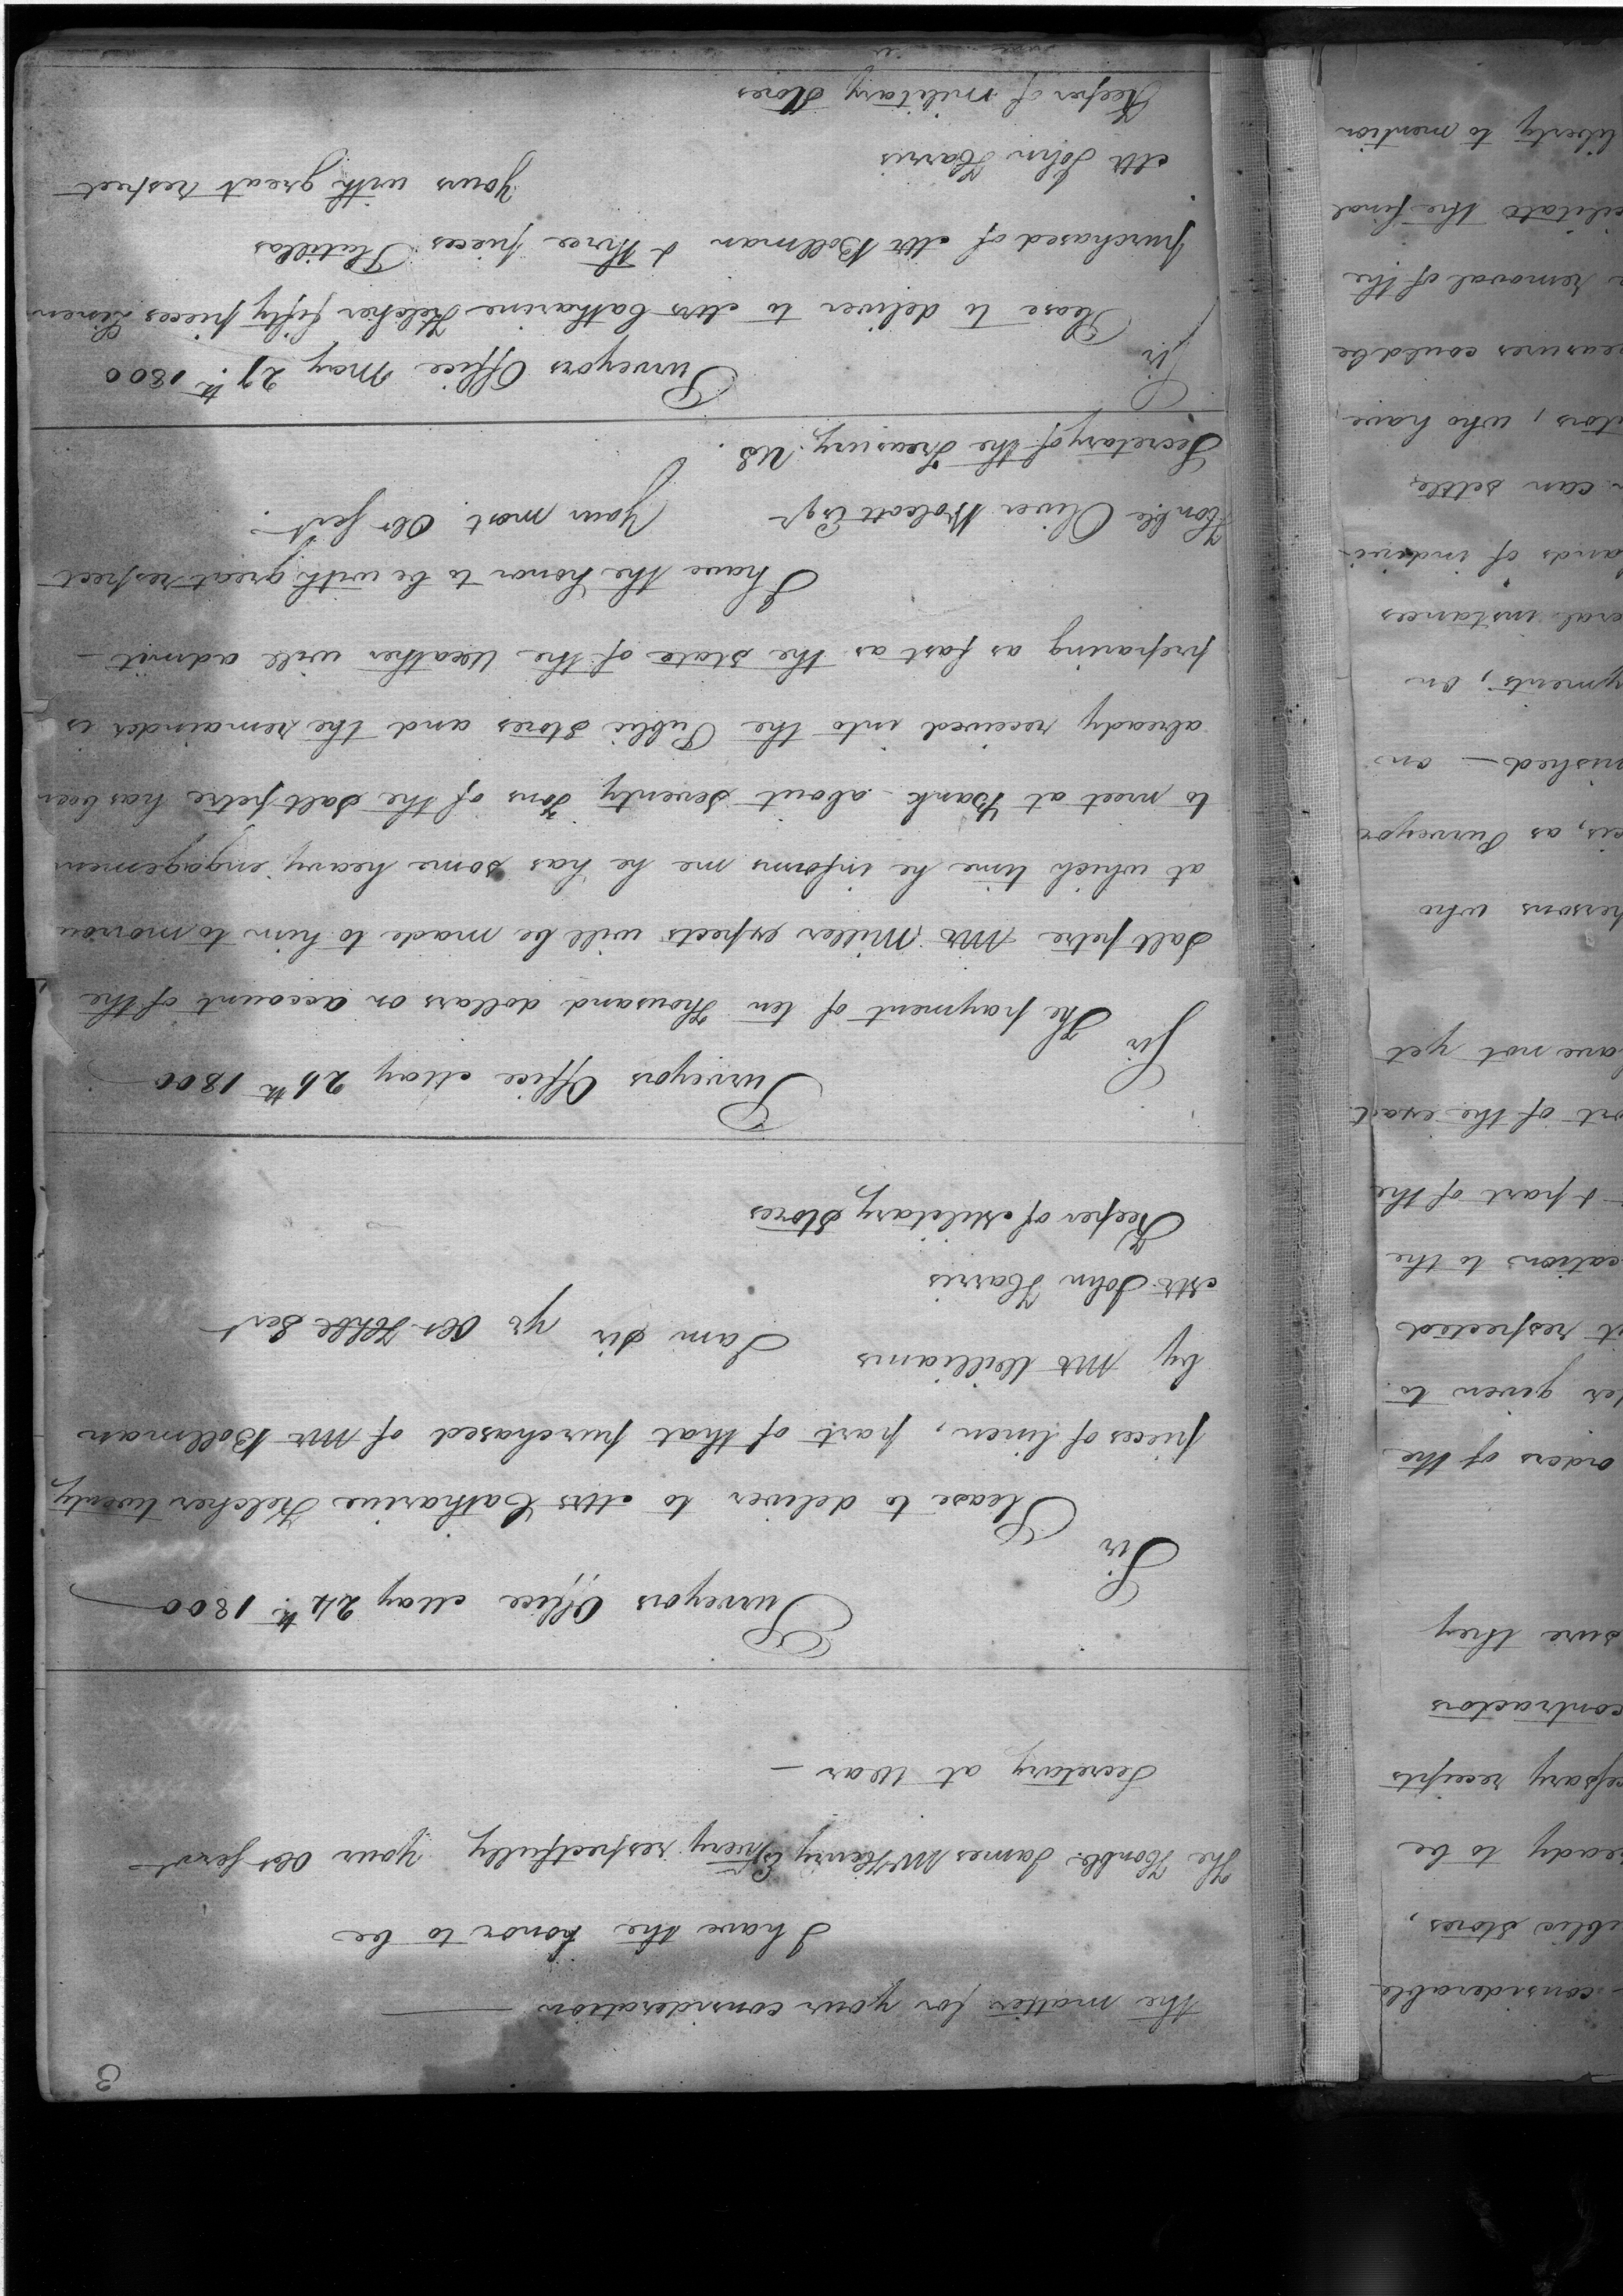 3
the matter for your consideration —
I have the honor to be
The Honble James McHenry Esqr very respectfully your Obt Servt
Secretary at War —
Purveyors Office May 24th 1800
Sir
Please to deliver to Mrs Catharine Kelcher twenty
pieces of linen, part of that purchased of Mr Bollman
by Mr Williams
I am Sir yr Obt Hble Sert
Mr John Harris
Keeper of Military Stores
Purveyors Office May 26th 1800
Sir
The payment of ten thousand dollars on account of the
Salt petre Mr Miller expects will be made to him to morrow
at which time he informs me he has some heavy engagemen
to meet at Bank - about Seventy Tons of the Salt petre has been
already received into the Public Stores and the remainder is
preparing as fast as the state of the Weather will admit —
I have the honor to be with great respect
Honble Oliver Wolcott Esqr Your most Obt Sert
Secretary of the Treasury US.
Purveyors Office May 27th 1800
Sir
Please to deliver to Mrs Catharine Kelcher fifty pieces Linen
purchased of Mr Bollman & three pieces Platillas
Yours with great respect
Mr John Harris
Keeper of Military Stores
considerable
ublic Stores,
eady to be
cessary receipts
contractors
sure they
orders of the
er given to
t respected
cation to the
& part of the
ort of the exact
ave not yet
persons who
cis, as Purveyor
nished — on
yments, on
eral instances
ands of indivi-
can settle
tors, who have
easures could be
removal of the
cilitate the final
liberty to mention